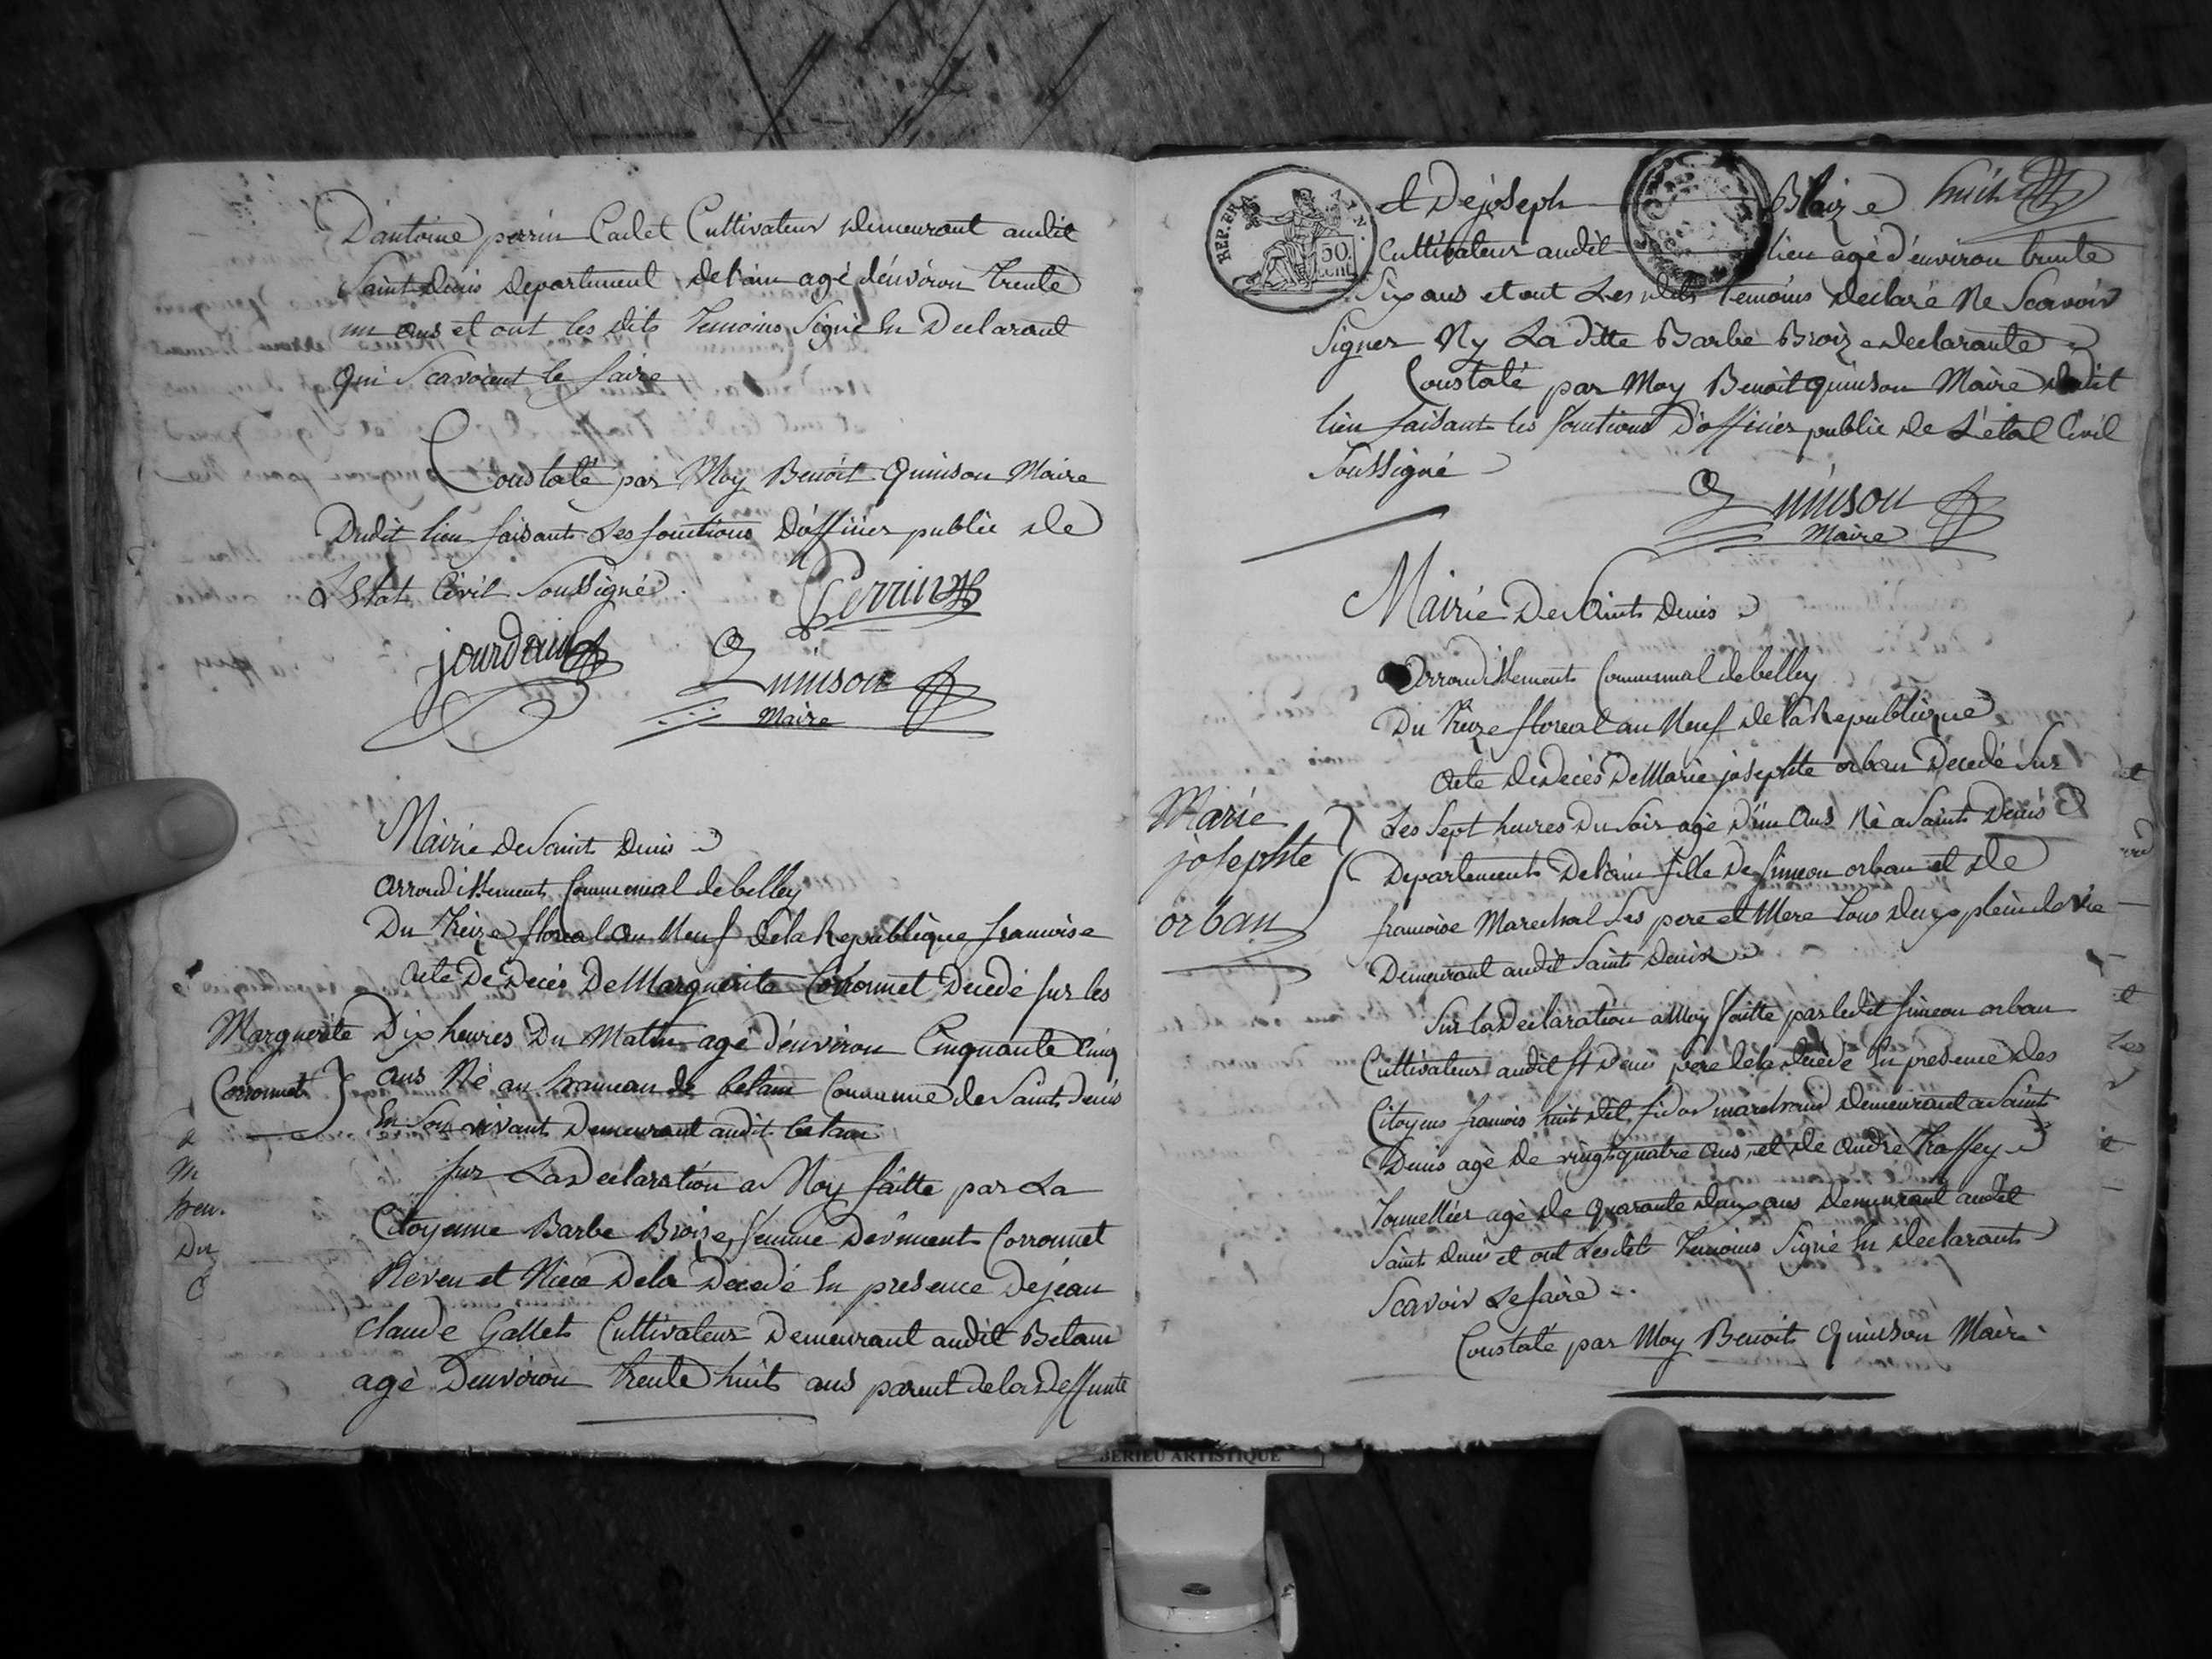 D'antoine perrin Cadet Cultivateur demeurant audit
Saint Denis departement de l'ain agé d'environ trente
un ans et ont les dits temoins signé en declarant
qui scavoient le faire
Constaté par Moy Benoit Quinson Maire
Dudit lieu faisant les fonctions D'officier public de
L'état Civil soussigné
Perrin
jourdain
Quinson
Maire
Mairie de Saint Denis
arrondissement Communal de belley
Du treize floreal an Neuf de la Republique francoise
Acte De Decès De Marguerite Corronnet Decedé sur les
Marguerite
Corronnet
Dix heures Du Matin agé d'environ Cinquante Cinq
ans Né au hammau de betan Commune de Saint Denis
En Son vivant Demeurant audit betan
a
m
hren.
Du
C
sur La Declaration a Moy faitte par La
Citoyenne Barbe Broize femme De vincent Corronnet
Neveu et Niece De la Decedé En presence De jean
claude Gallet Cultivateur Demeurant audit Betan
agé D'environ trente huit ans parent de la Deffunte
REP. FRA
50
cent
et De joseph Blaize huit
Cultivateur audit lieu agé d'environ trente
Six ans et ont Les dits temoins Declaré Ne Scavoir
Signer Ny La ditte Barbe Broize declarante
Constaté par Moy Benoit quinson Maire dudit
lieu faisant les fonctions D'officier public de L'etat Civil
Soussigné
Quinson
Maire
Mairie De Saint Denis
arrondissement Communal de belley
Du treize floreal an Neuf de la Republique
Acte de Decès De Marie josephte orban Decedé Sur
Marie
josephte
orban
Les Sept heures Du Soir agé D'un ans Né a Saint Denis
Departement De l'ain fille De Simeon orban et de
francoise Marechal Ses pere et Mere tous deux plein de vie
Demeurant audit Saint Denis
Sur la Declaration a Moy faitte par ledit Simeon orban
Cultivateur audit St Denis pere de la decedé En presence des
Citoyens francois huit dit marchand demeurant a Saint
Denis agé de vingt quatre ans et de andré traffey
tonnellier agé de quarante deux ans Demeurant audit
Saint Denis et ont Lesdit temoins Signé En declarant
Scavoir Le faire
Constaté par Moy Benoit Quinson Maire
BERIEU ARTISTIQUE